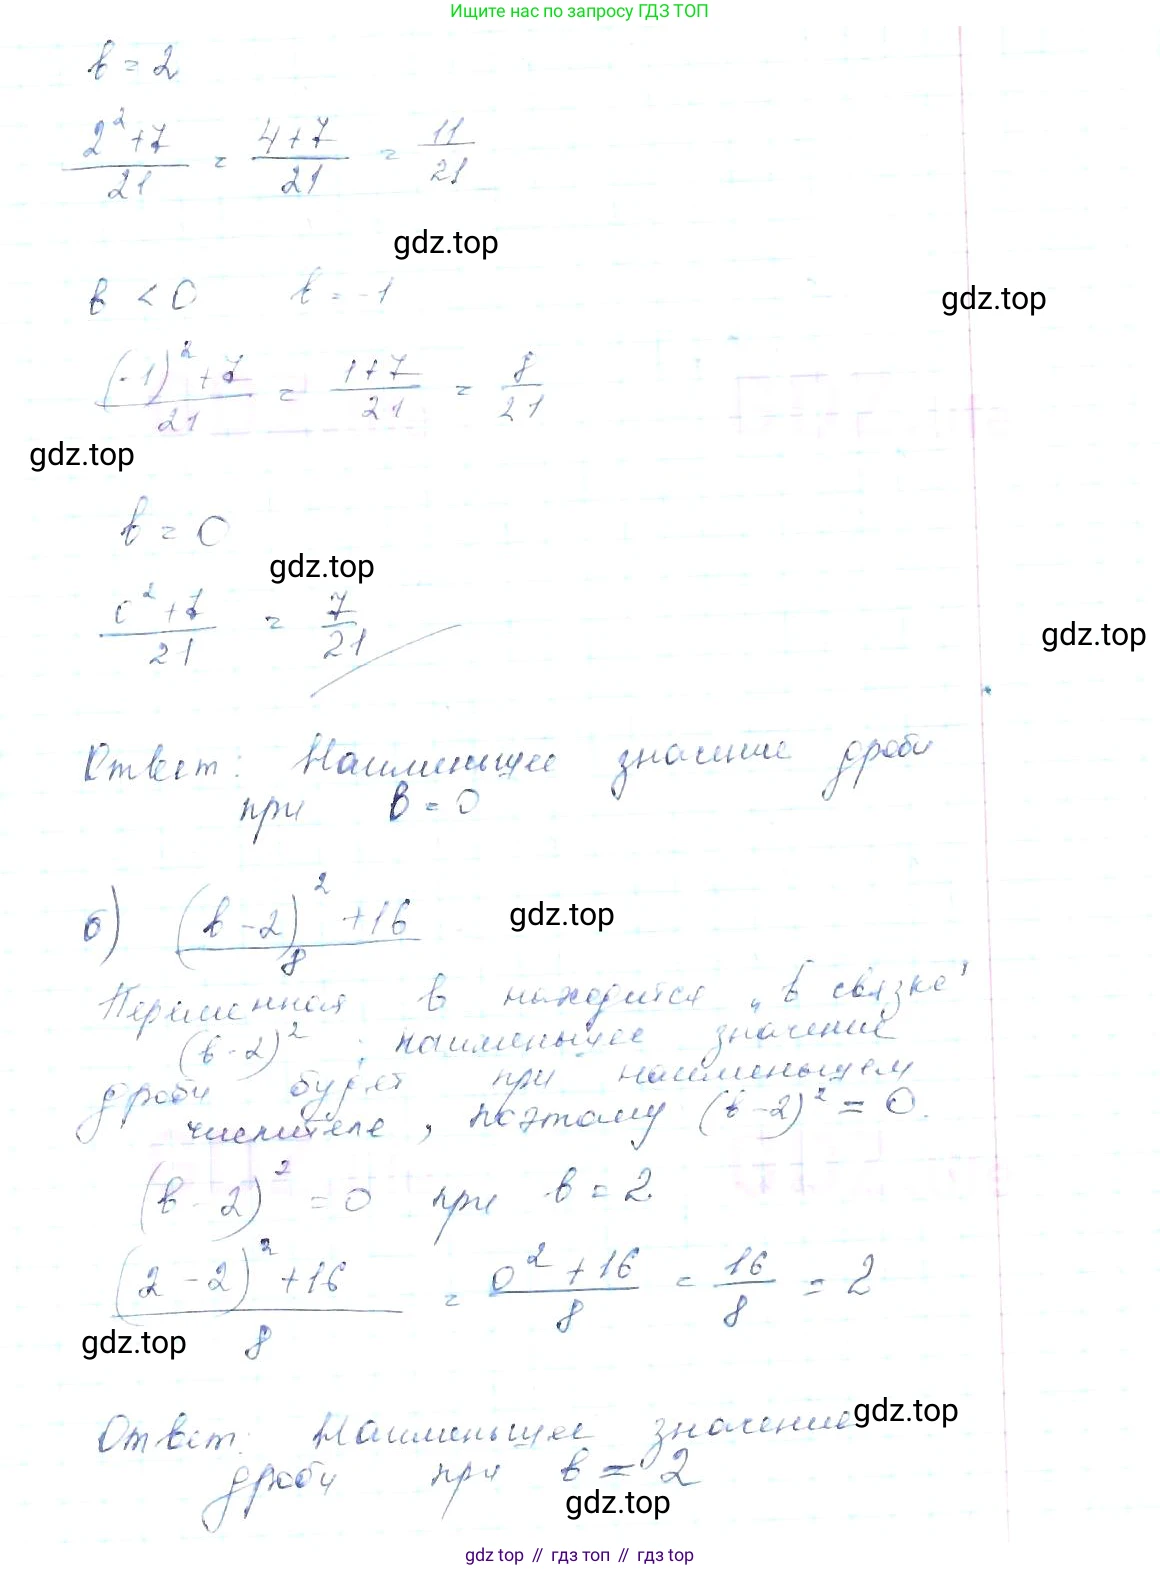 Ищите нас по запросу ГДЗ ТОП
в = 2
(2² + 7)/21 = (4 + 7)/21 = 11/21
gdz.top
в < 0 в = -1
gdz.top
((-1)² + 7)/21 = (1 + 7)/21 = 8/21
gdz.top
в = 0
gdz.top
(0² + 7)/21 = 7/21
gdz.top
Ответ: Наименьшее значение дроби
при в = 0
б) ((в - 2)² + 16)/8
gdz.top
Переменная в находится „в связке"
(в - 2)², наименьшее значение
дроби будет при наименьшем
числителе, поэтому (в - 2)² = 0.
(в - 2)² = 0 при в = 2.
((2 - 2)² + 16)/8 = (0² + 16)/8 = 16/8 = 2
gdz.top
Ответ: Наименьшее значение
gdz.top
дроби при в = 2
gdz.top
gdz top // гдз топ // гдз top